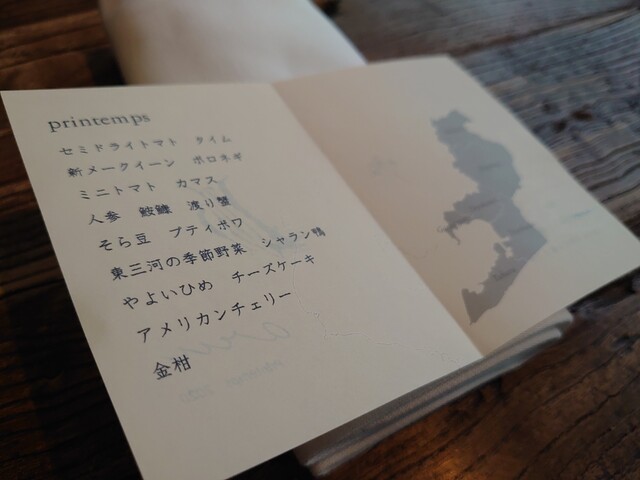 printemps
セミドライトマト　タイム
新メークイーン　ポロネギ
ミニトマト　カマス
人参　鮟鱇　渡り蟹
そら豆　プティポワ
東三河の季節野菜　シャラン鴨
やよいひめ　チーズケーキ
アメリカンチェリー
金柑